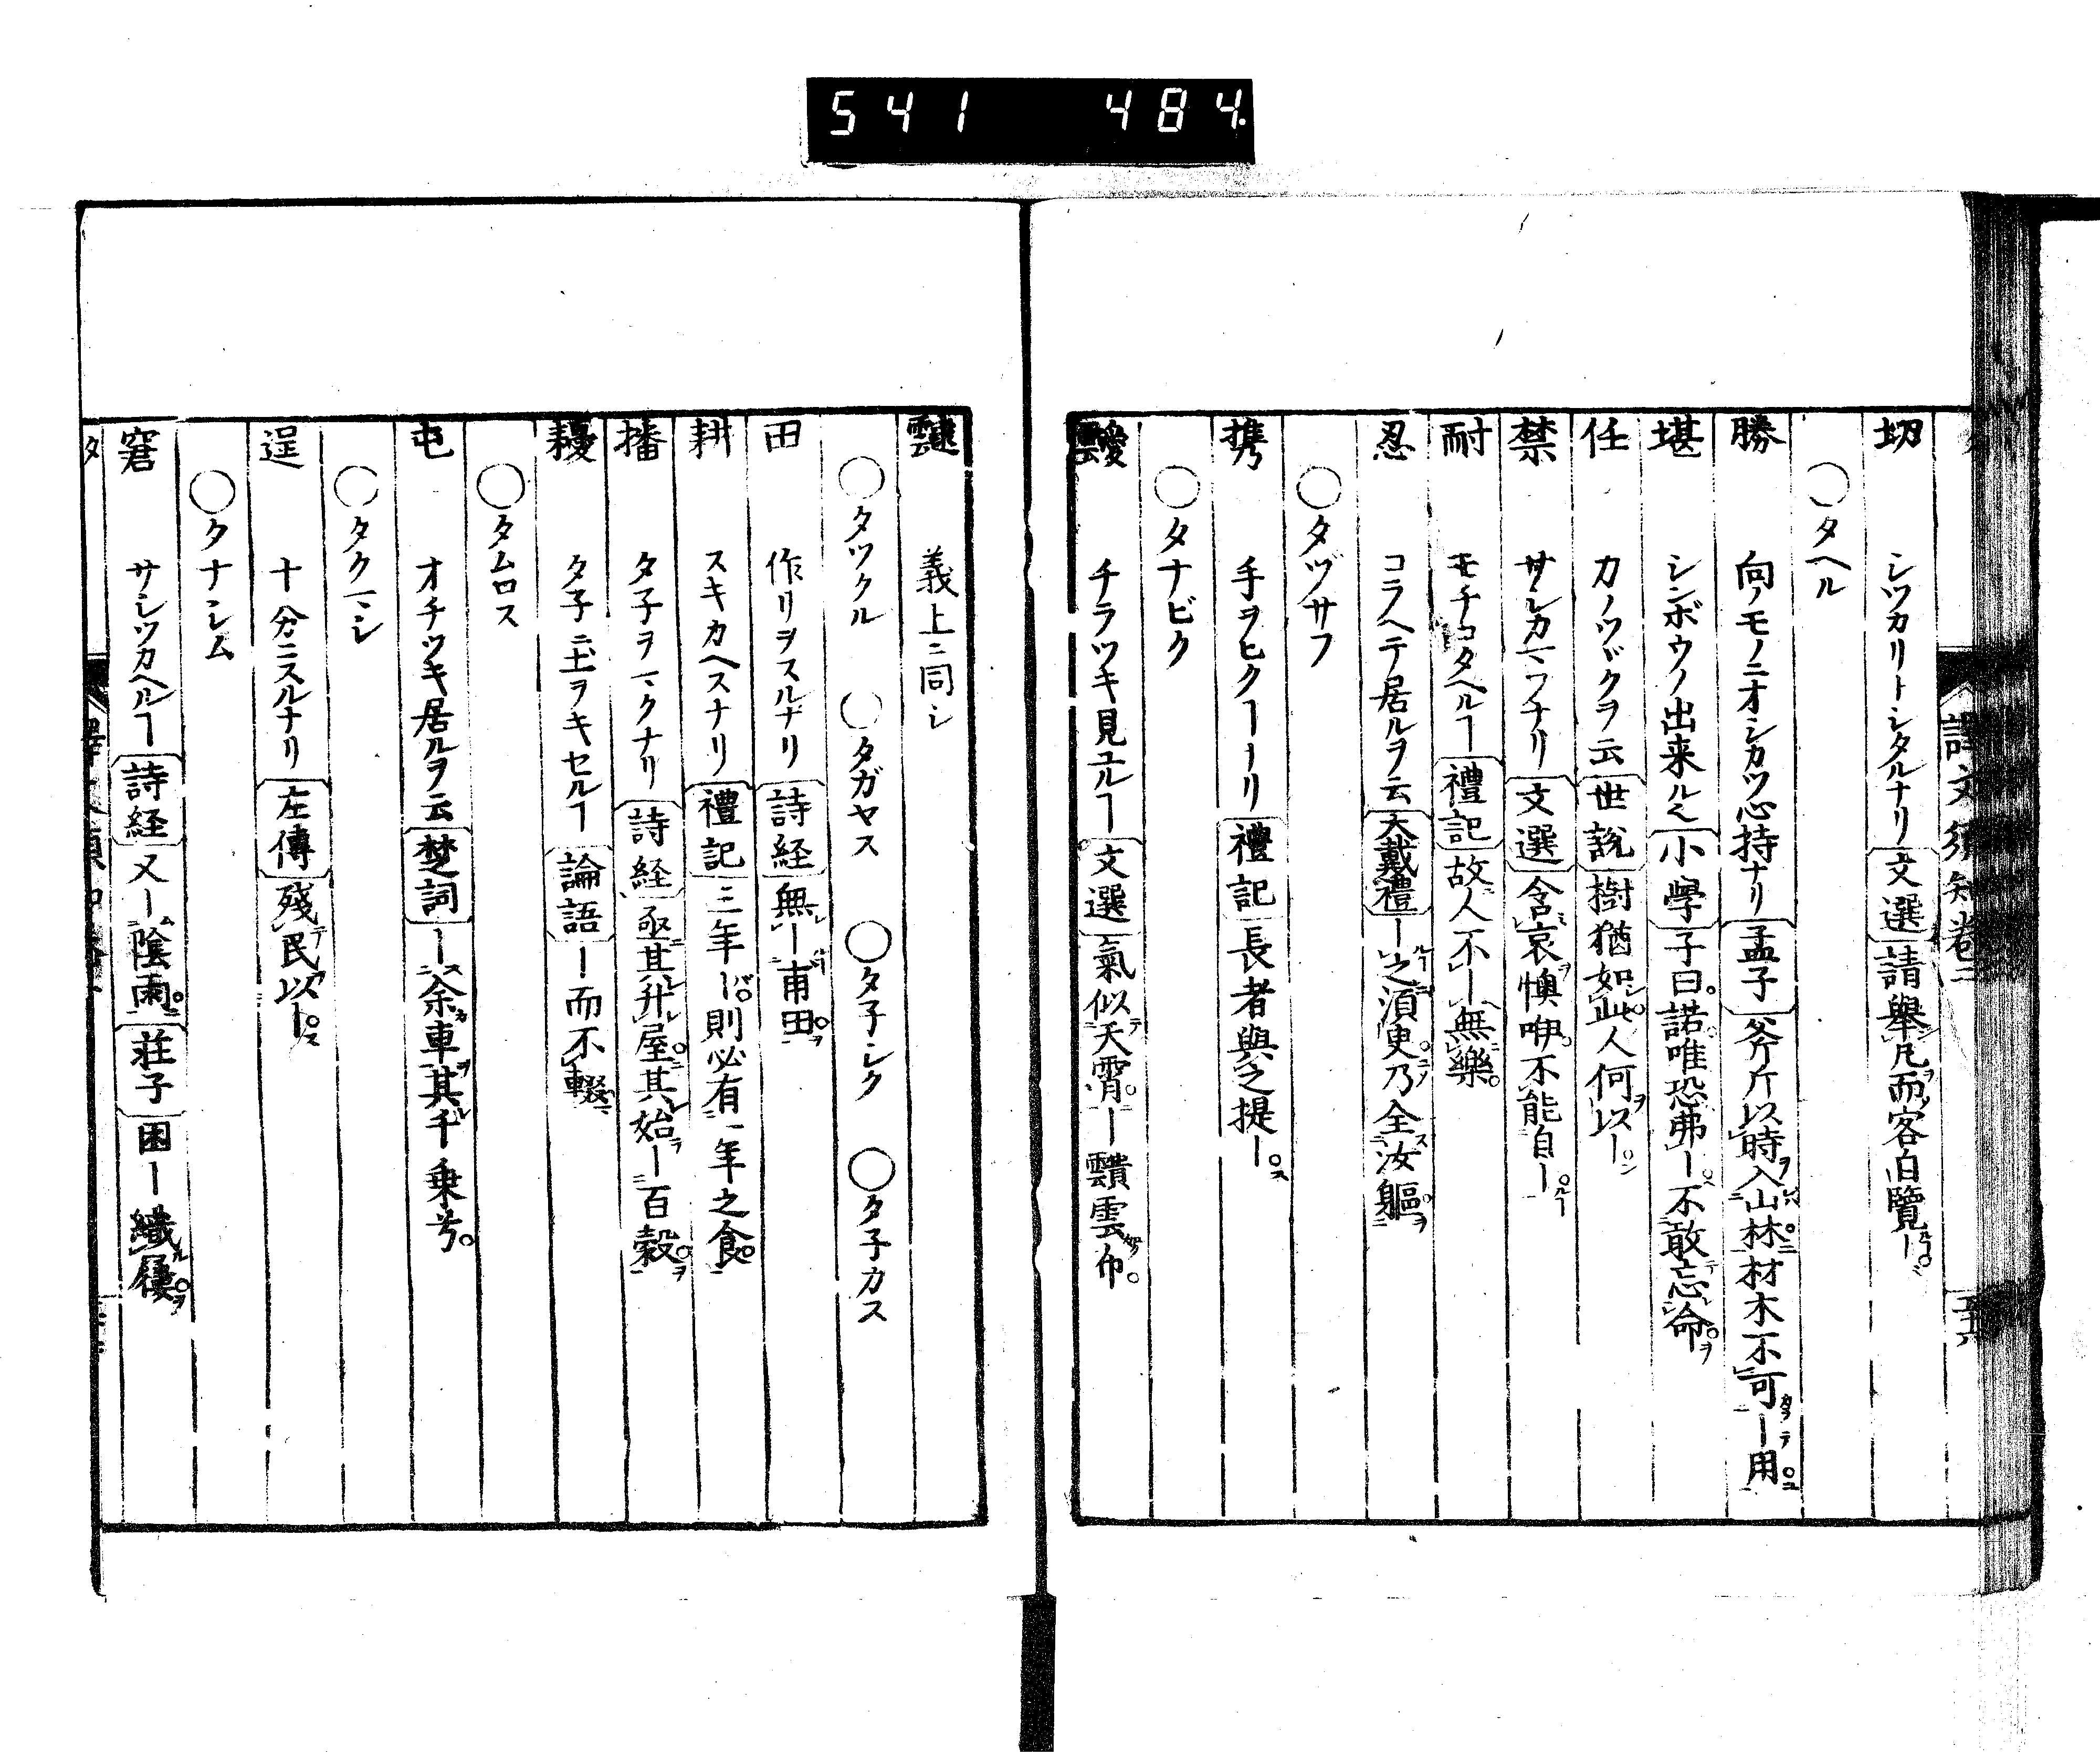 541 484
譯文須知卷二
切 シツカリトシタルナリ 文選 請舉凡而客自覽ー
○タヘル
勝 向ノモノニオシカツ心持ナリ 孟子 斧斤以時入山林材木不可ー用
堪 シンボウノ出来ル 小學 子曰諾唯恐弗ー不敢忘命
任 カノツヾクヲ云 世説 樹猶如此人何以ー
禁 サシカマフナリ 文選 含哀懊咿不能自ー
耐 モチコタヘルヿ 禮記 故人不ー無樂
忍 コラヘテ居ルヲ云 大戴禮 ー之須臾乃全汝軀
○タヅサフ
携 手ヲヒクヿナリ 禮記 長者與之提ー
○タナビク
靉 チラツキ見エルヿ 文選 氣似天霄ー 靅雲布
靆 義上ニ同シ
○タツクル ○タガヤス ○タ子シク ○タ子カス
田 作リヲスルナリ 詩経 無ー甫田
耕 スキカヘスナリ 禮記 三年ー則必有一年之食
播 タ子ヲマクナリ 詩経 亟其升屋其始ー百穀
耰 タ子ニ土ヲキセルヿ 論語 ー而不輟
○タムロス
屯 オチツキ居ルヲ云 楚詞 ー余車其千乗兮
○タクマシ
逞 十分ニスルナリ 左傳 殘民以ー
○タナシム
窘 サシツカヘルヿ 詩経 又ー陰雨 荘子 困ー織屨
タ